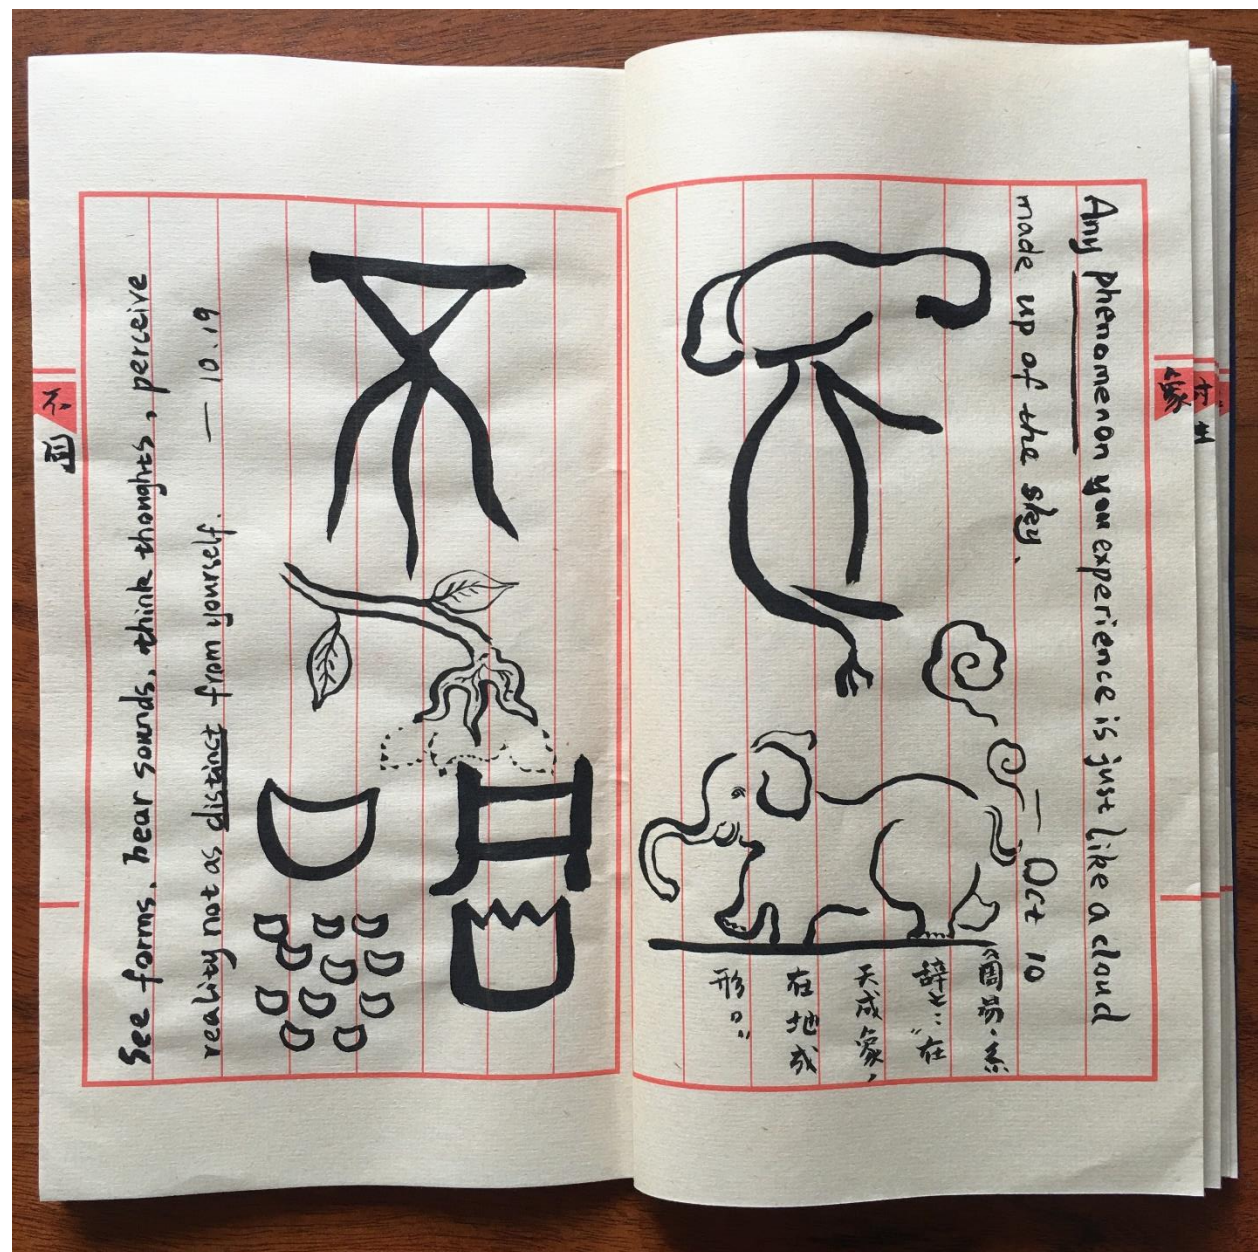 象
Any phenomenon you experience is just like a cloud
made up of the sky. — Oct 10
《周易·系
辞上：“在
天成象，
在地成
形。”
See forms, hear sounds, think thoughts, perceive
reality not as distinct from yourself. — 10.19
不同